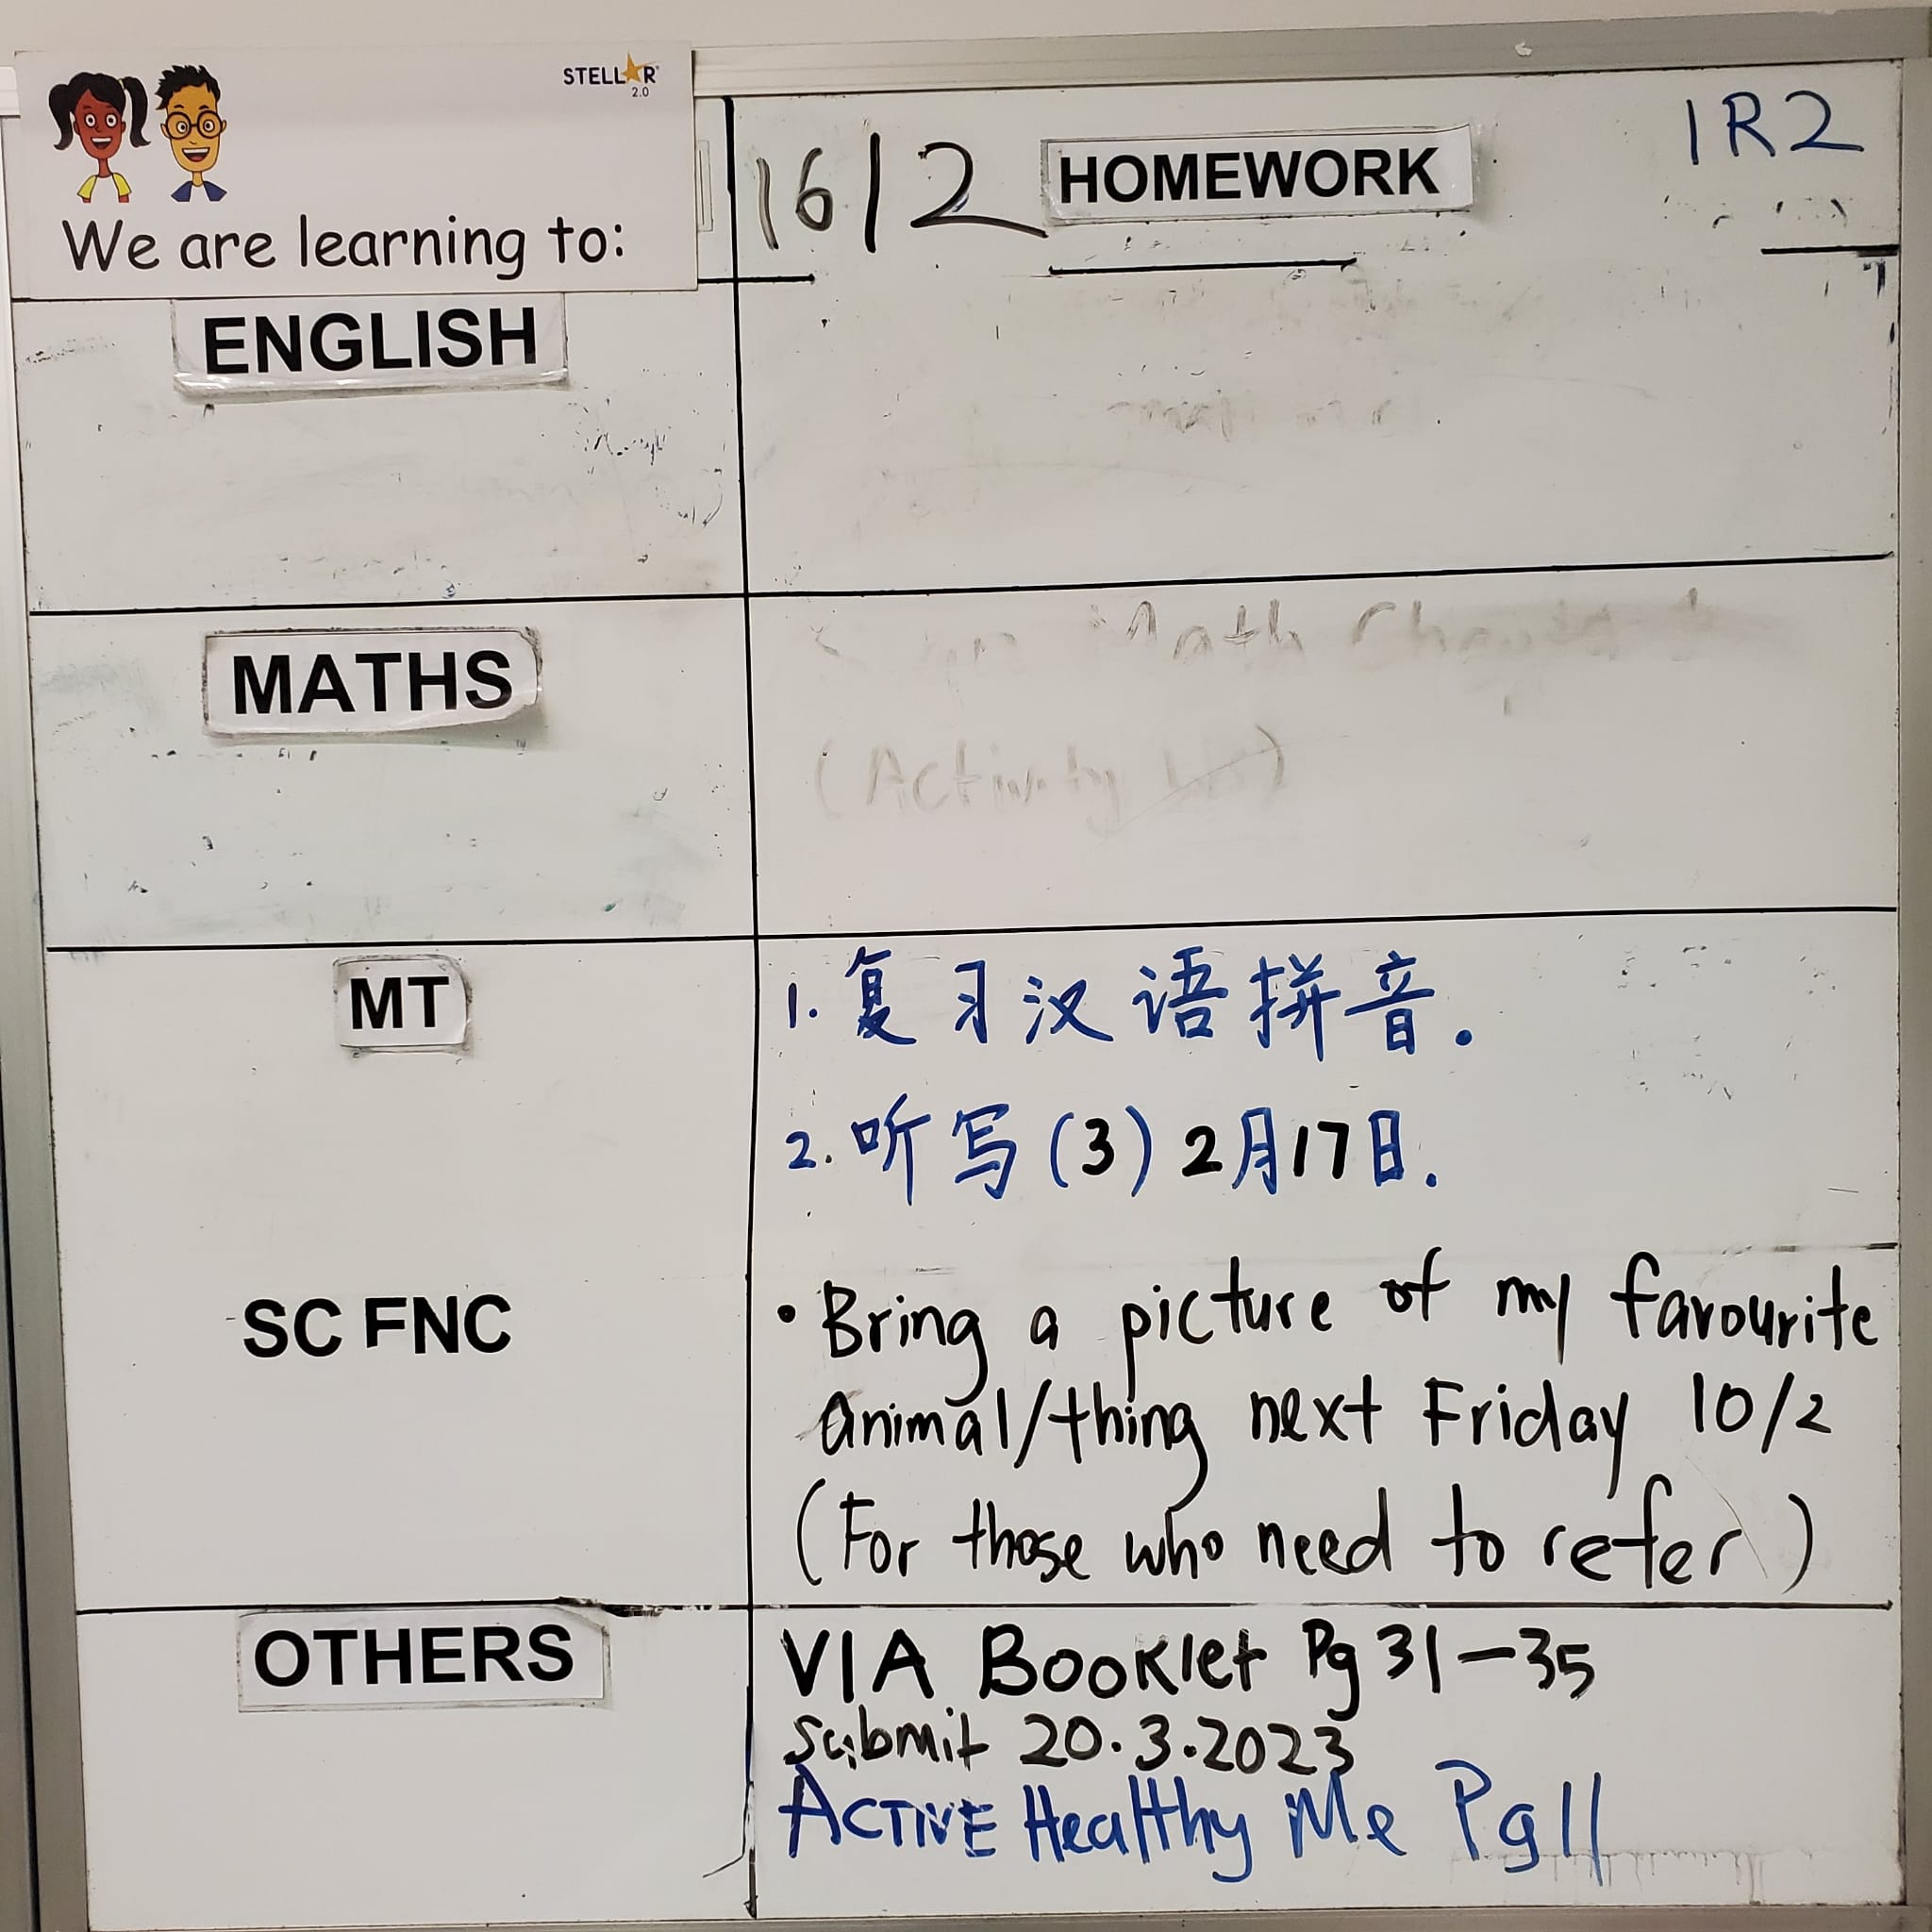 STELLAR
2.0
We are learning to:
16/2 HOMEWORK 1R2
ENGLISH
MATHS
Math
(Activity
MT
1. 复习汉语拼音.
2. 听写(3) 2月17日.
SC FNC
• Bring a picture of my favourite
animal/thing next Friday 10/2
(For those who need to refer)
OTHERS
VIA Booklet Pg 31-35
Submit 20.3.2023
ACTIVE Healthy Me Pg 11